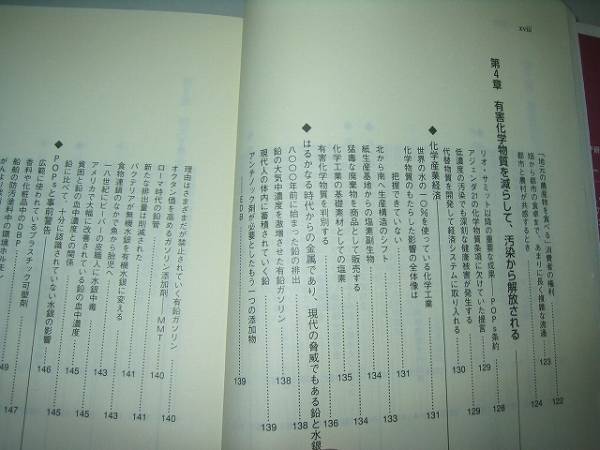 xviii
「地元の農産物を食べる」消費者の権利 122
畑から都市の食卓まで、あまりに長く複雑な流通 123
都市と農村が共感するとき 124
第4章 有害化学物質を減らして、汚染から解放される
リオ・サミット以降の重要な成果——POPs条約 128
アジェンダ21の化学物質条項に欠けていた提言 128
低濃度の汚染でも深刻な健康被害が発生する 129
代替物質を開発して経済システムに取り入れる 130
◆化学産業経済 131
世界の水の一〇%を使っている化学工業 131
化学物質のもたらした影響の全体像は
把握できていない
北から南へ生産構造のシフト 133
紙生産基地からの塩素副生物 134
猛毒な廃棄物を商品として販売する 134
化学工業の基礎素材としての塩素 135
有害化学物質を判別する 136
◆はるかなる時代からの金属であり、現代の脅威でもある鉛と水銀 138
八〇〇〇年前に始まった鉛の排出 138
鉛の大気中濃度を激増させた有鉛ガソリン 138
現代人の体内に蓄積されていく鉛 139
アンチノック剤が必要としたもう一つの添加物 139
理由はさまざまだが禁止されていく有鉛ガソリン 140
オクタン価を高めるガソリン添加剤——MMT 140
ローマ時代の鉛管
新たな排出量は削減された
バクテリアが無機水銀を有機水銀に変える
食物連鎖のなかで魚から胎児へ
一八世紀にビーバーの皮職人に水銀中毒
アメリカで大幅に改善されている鉛の血中濃度
貧困と鉛の血中濃度との関係 145
鉛に比べて、十分に認識されていない水銀の影響 145
◆POPsと事前警告 146
広範に使われているプラスチック可塑剤
香料や化粧品中のDBP
船舶の防汚塗料中の環境ホルモン 147